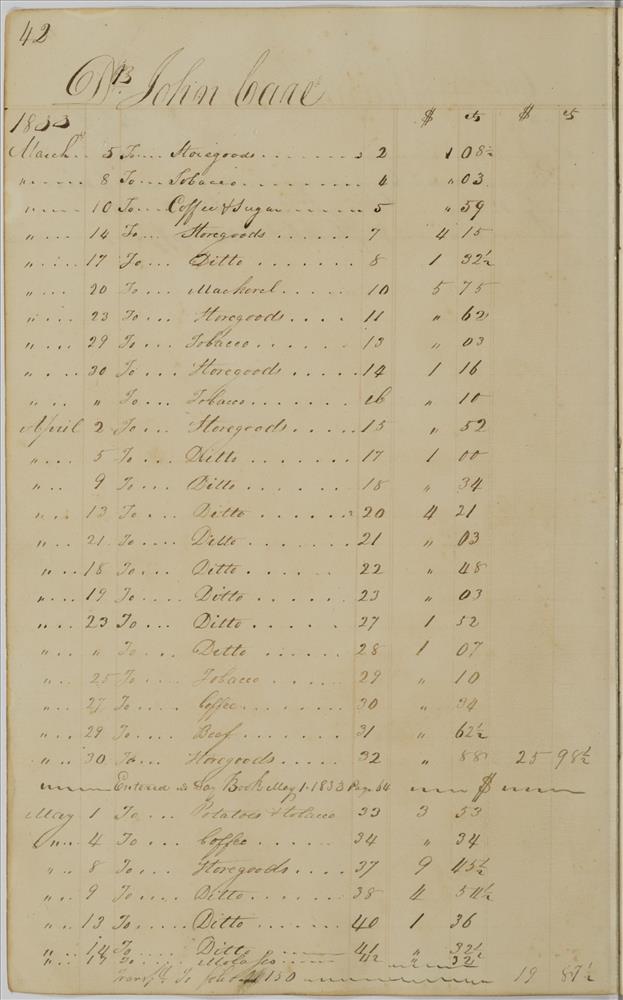 42
Dr. John Carl
1833 $ cts $ cts
March 5 To .... Storegoods ........ 2 1 08½
" 8 To .... Tobacco ......... 4 " 03
" 10 To ... Coffee & Sugar ...... 5 " 59
" 14 To ... Storegoods ...... 7 4 15
" 17 To ... Ditto ........ 8 1 32½
" 20 To ... Mackerel ..... 10 5 75
" 23 To ... Storegoods .... 11 " 62
" 29 To ... Tobacco ....... 13 " 03
" 30 To ... Storegoods ..... 14 1 16
" " To ... Tobacco ....... 16 " 10
April 2 To ... Storegoods ..... 15 " 52
" 5 To ... Ditto ........ 17 1 00
" 9 To ... Ditto ....... 18 " 34
" 13 To ... Ditto ....... 20 4 21
" 21 To .... Ditto ....... 21 " 03
" 18 To .... Ditto ...... 22 " 48
" 19 To .... Ditto ....... 23 " 03
" 23 To .... Ditto ...... 27 1 52
" " To .... Ditto ...... 28 1 07
" 25 To .... Tobacco .... 29 " 10
" 27 To .... Coffee ....... 30 " 34
" 29 To .... Beef ....... 31 " 62½
" 30 To .... Storegoods ..... 32 " 88 25 98½
Entered in Day Book May 1. 1833 Page 64 $
May 1 To .... Potatoes & tobacco 33 3 53
" 4 To .... Coffee ...... 34 " 34
" 8 To .... Storegoods .... 37 9 45½
" 9 To .... Ditto ....... 38 4 54½
" 13 To .... Ditto ....... 40 1 36
" 14 To .... Ditto 41 " 32½
" 17 To .... Molasses 42 " 32½
Transfd. To folio 150 19 87½